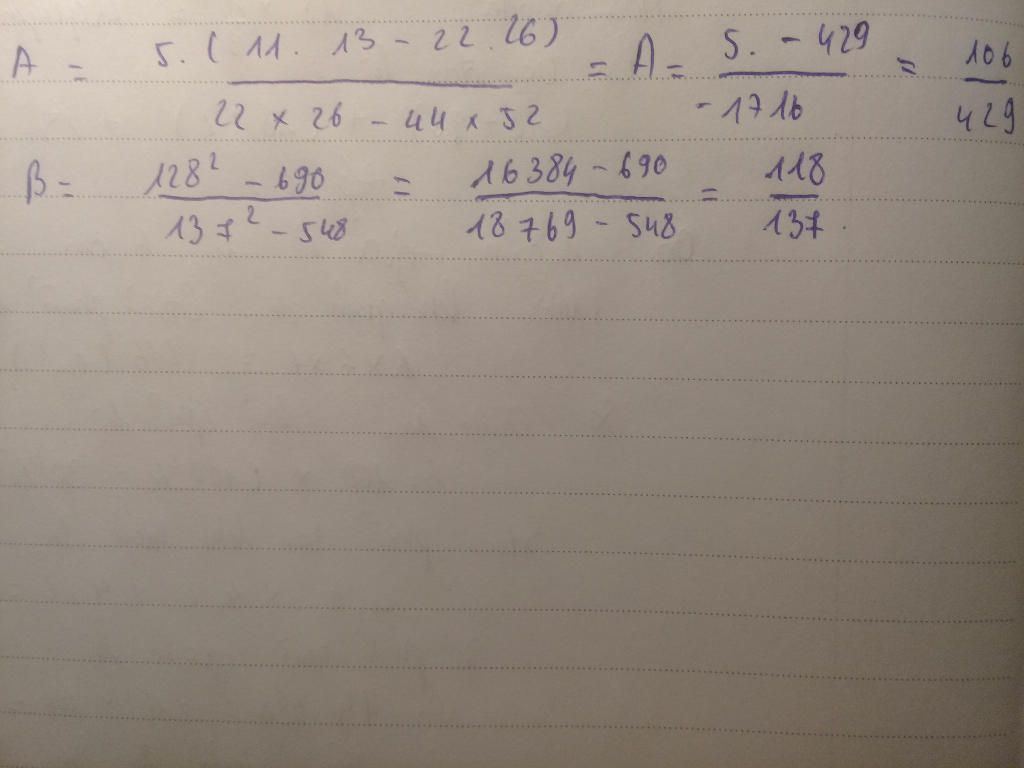 A = 5.(11. 13 - 22.26) / 22 x 26 - 44 x 52 = A = 5. - 429 / - 1716 = 106 / 429
B = 128² - 690 / 137² - 548 = 16384 - 690 / 18769 - 548 = 118 / 137.